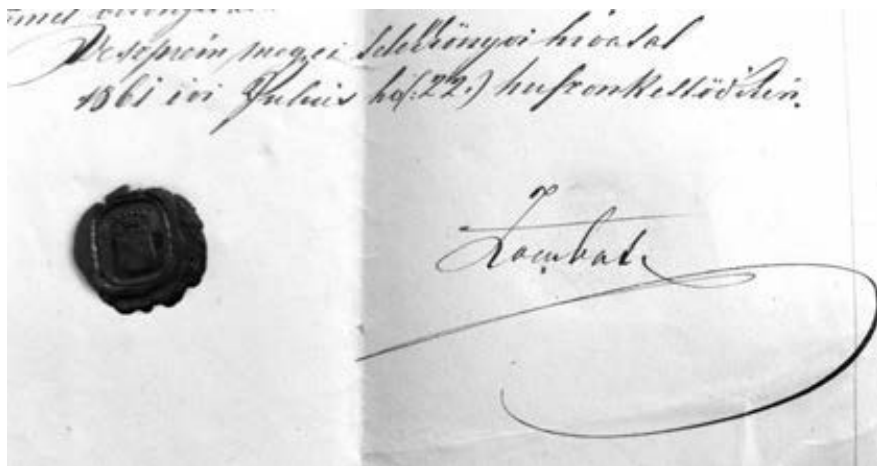 Veszprém megyei telekkönyvi hivatal
1861 évi Julius hó (22.) huszonkettődikén.